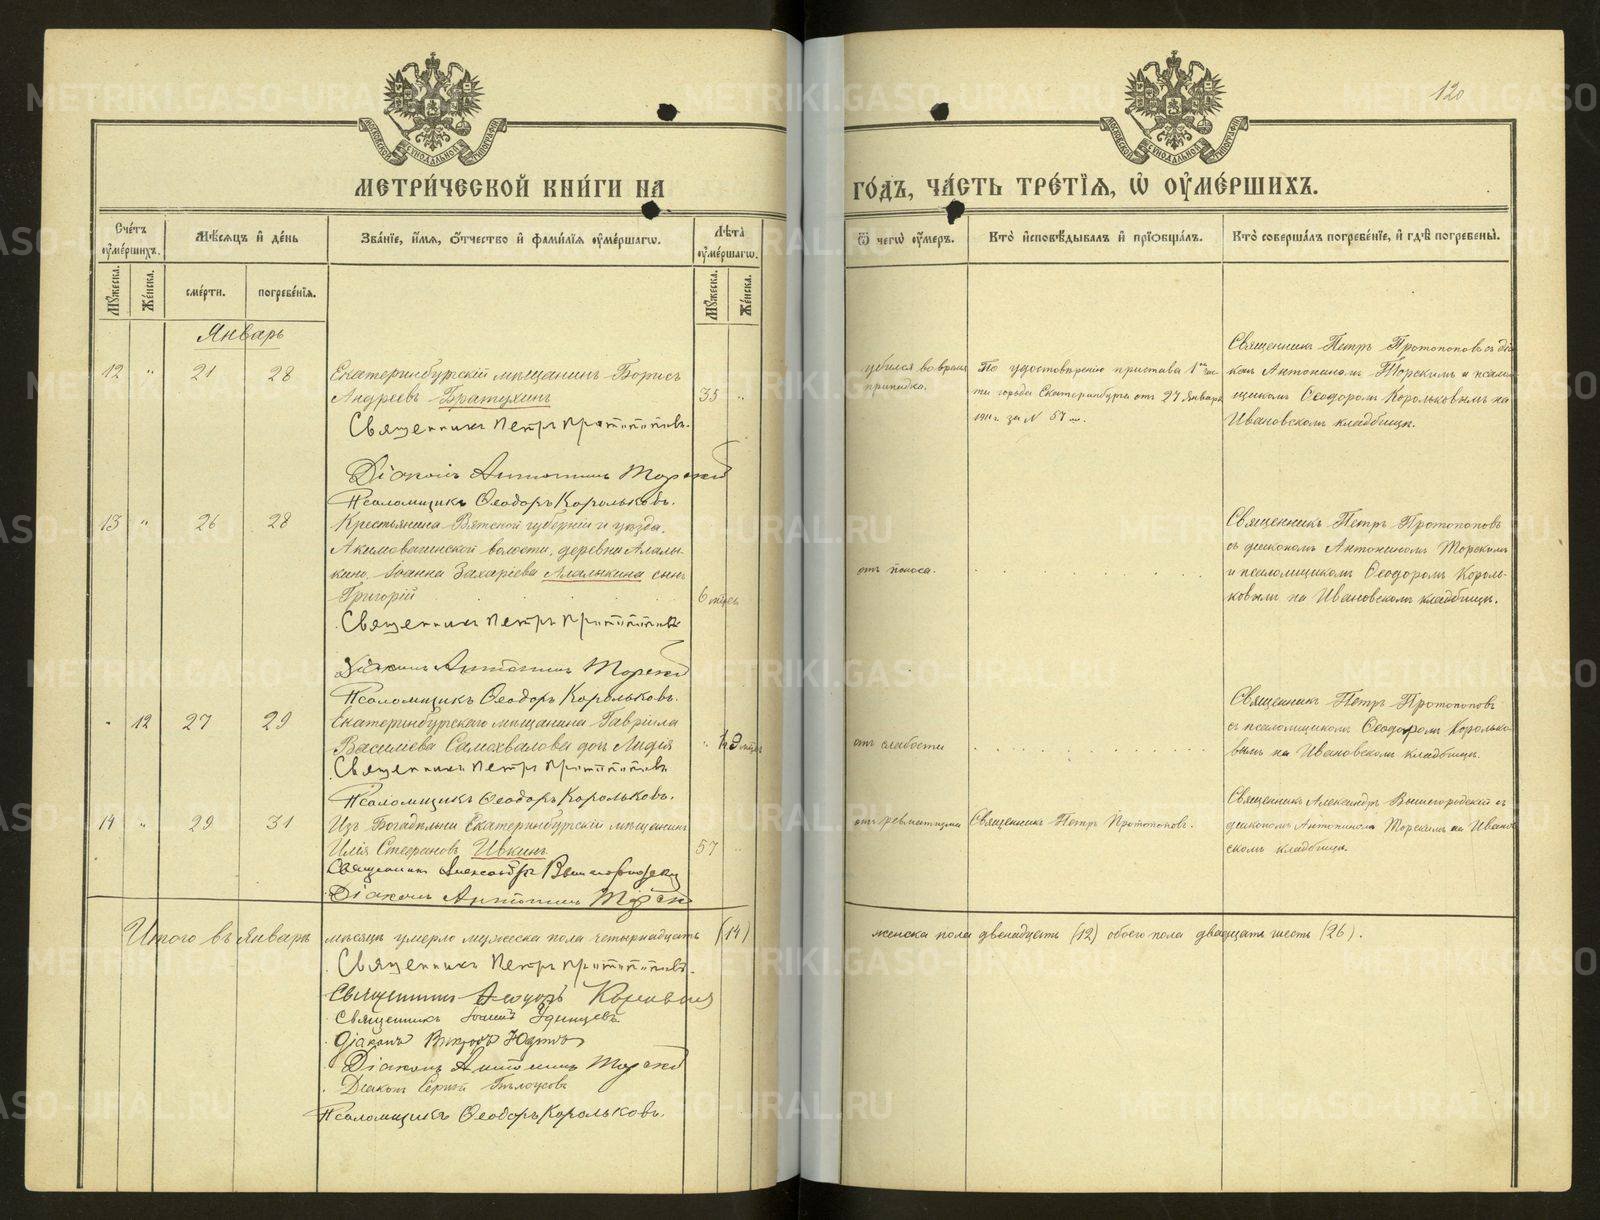 120
МОСКОВСКОЙ СѴНОДАЛЬНОЙ ТИПОГРАФІИ
МОСКОВСКОЙ СѴНОДАЛЬНОЙ ТИПОГРАФІИ
МЕТРИ́ЧЕСКОЙ КНИ́ГИ НА
ГО́ДЪ, ЧА́СТЬ ТРЕ́ТІѦ, Ѡ҆ ОУ҆МЕ́РШИХЪ.
Сче́тъ оу҆ме́ршихъ.
Мѣ́сѧцъ и҆ де́нь
Зва́нїе, и҆́мѧ, ѻ҆́тчество и҆ фами́лїѧ оу҆ме́ршагѡ.
Лѣ́та оу҆ме́ршагѡ.
Ѿ чегѡ̀ оу҆́меръ.
Кто̀ и҆сповѣ́дывалъ и҆ прїѡбща́лъ.
Кто̀ соверша́лъ погребе́нїе, и҆ гдѣ̀ погребены̀.
Мꙋ́жеска.
Же́нска.
сме́рти.
погребе́нїѧ.
Мꙋ́жеска.
Же́нска.
Январь
12 " 21 28 Екатеринбургскій мѣщанинъ Борисъ
Андреевъ Братухинъ 35 "
Священникъ Петръ Протопоповъ.
Діаконъ Антонинъ Торскій
Псаломщикъ Ѳеодоръ Корольковъ.
убился во время
припадка.
По удостовѣренію пристава 1ой ча-
сти города Екатеринбурга отъ 27 Января
1911 г. за № 57
Священникъ Петръ Протопоповъ съ діа-
кономъ Антониномъ Торскимъ и псалом-
щикомъ Ѳеодоромъ Корольковымъ на
Ивановскомъ кладбищѣ.
13 " 26 28 Крестьянина Вятской губерніи и уѣзда,
волости, деревни Алалы-
кино, Іоанна Захаріева Алалыкина сынъ
Григорій 6 мѣсяц.
Священникъ Петръ Протопоповъ
Діаконъ Антонинъ Торскій
Псаломщикъ Ѳеодоръ Корольковъ.
отъ поноса.
Священникъ Петръ Протопоповъ
съ діакономъ Антониномъ Торскимъ
и псаломщикомъ Ѳеодоромъ Король-
ковымъ на Ивановскомъ кладбищѣ.
" 12 27 29 Екатеринбургскаго мѣщанина Гавріила
Василіева Самохвалова дочь Лидія " 9 мѣсяц.
Священникъ Петръ Протопоповъ
Псаломщикъ Ѳеодоръ Корольковъ.
отъ слабости
Священникъ Петръ Протопоповъ
съ псаломщикомъ Ѳеодоромъ Королько-
вымъ на Ивановскомъ кладбищѣ.
14 " 29 31 Изъ Богадѣльни Екатеринбургскій мѣщанинъ
Илія Стефановъ Ивкинъ 57 "
Священникъ Александръ Вышегородскій
Діаконъ Антонинъ Торскій
отъ ревматизма
Священникъ Петръ Протопоповъ.
Священникъ Александръ Вышегородскій съ
діакономъ Антониномъ Торскимъ на Иванов-
скомъ кладбищѣ.
Итого въ январѣ мѣсяцѣ умерло мужеска пола четырнадцать (14)
женска пола двенадцать (12) обоего пола двадцать шесть (26).
Священникъ Петръ Протопоповъ.
Священникъ Ѳеодоръ
Священникъ Іоаннъ Удинцевъ
Діаконъ Викторъ Юдинъ
Діаконъ Антонинъ Торскій
Діаконъ Сергій Бѣлоусовъ
Псаломщикъ Ѳеодоръ Корольковъ.
METRIKI.GASO-URAL.RU